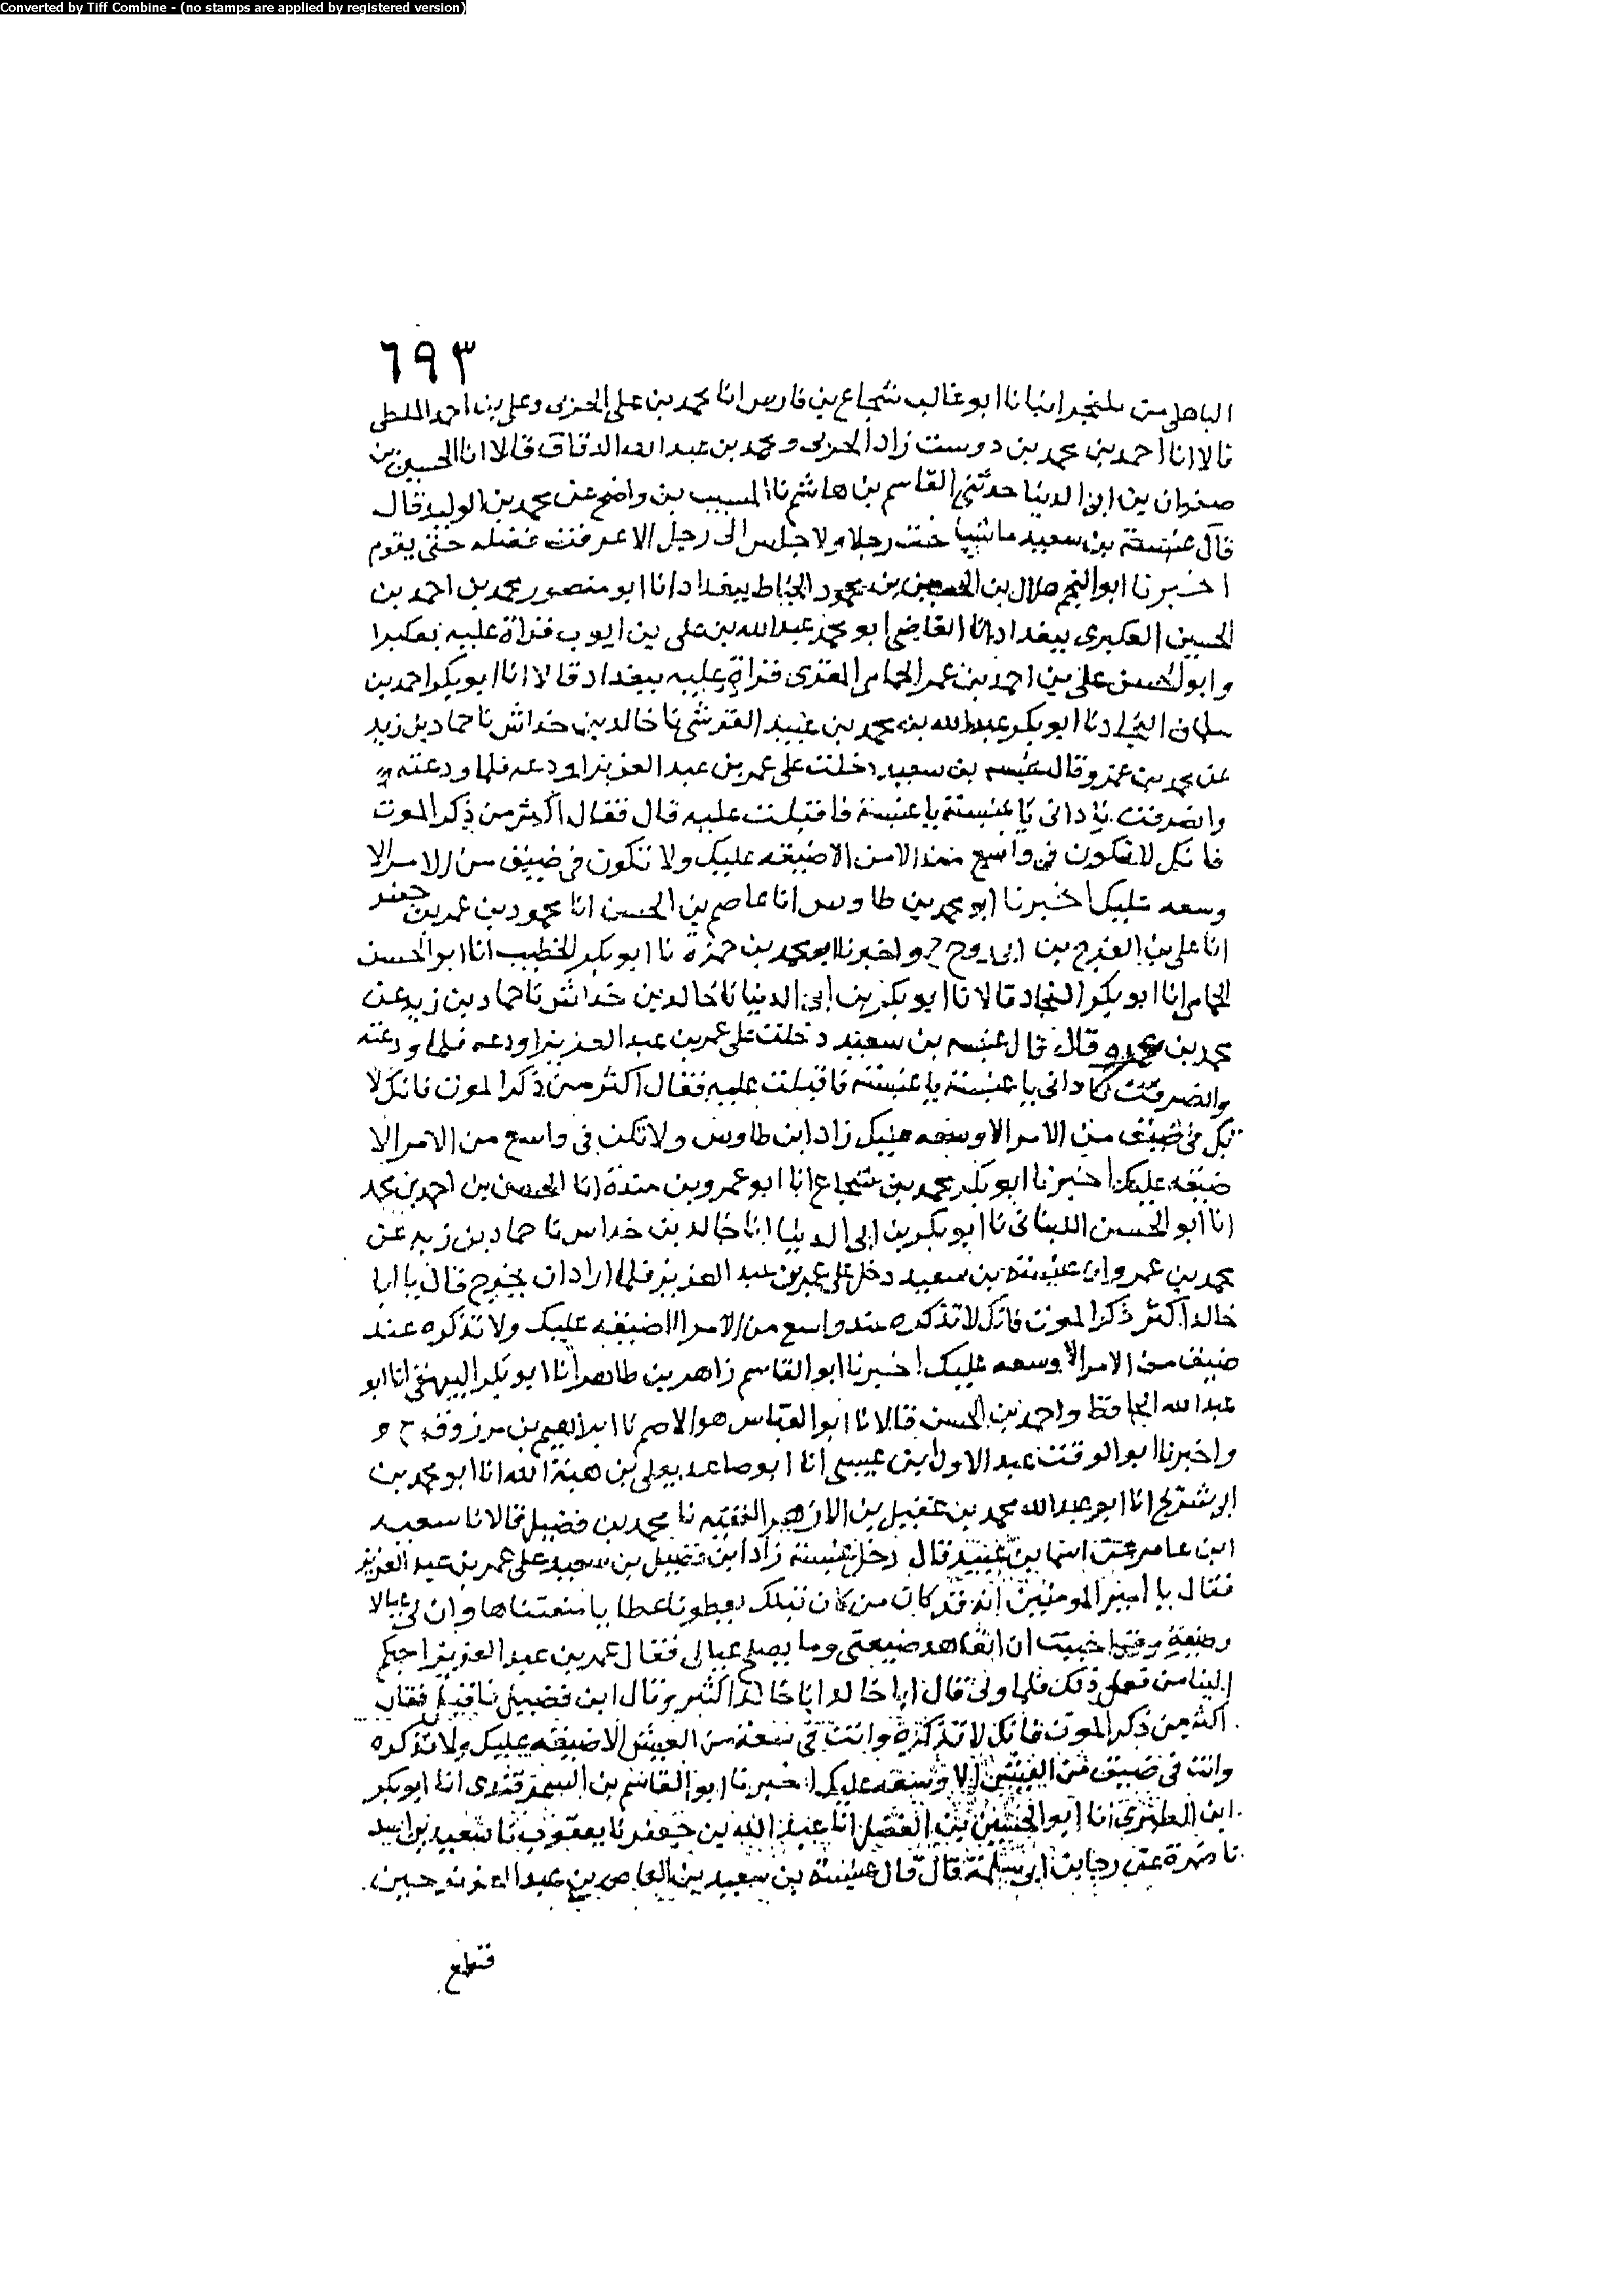 Converted by Tiff Combine - (no stamps are applied by registered version)
٦٩٣
الباهلي من بلنجر انبانا ابو غالب شجاع بن فارس انا محمد بن علي الحربي وعلي بن احمد الملطي
قالا انا احمد بن محمد بن دوست زاد الحربي ومحمد بن عبد الله الدقاق قالا انا الحسين بن
صفوان بن ابي الدنيا حدثني القاسم بن هاشم نا المسيب بن واضح عن محمد بن الوليد قال
قال عنبسة بن سعيد ما رجلا ولا جلس الى رجل الا عرفت فضله حتى يقوم
اخبرنا ابو النجم هلال بن الحسين بن محمود الخياط ببغداد انا ابو منصور محمد بن احمد بن
الحسين العكبري ببغداد انا القاضي ابو محمد عبد الله بن علي بن ايوب قراة عليه بعكبرا
وابو الحسن علي بن احمد بن عمر الحمامي المقرى قراة عليه ببغداد قالا انا ابو بكر احمد بن
سلمان النجاد نا ابو بكر عبد الله بن محمد بن عبيد القرشي نا خالد بن خداش نا حماد بن زيد
عن محمد بن عمرو قال عنبسه بن سعيد دخلت على عمر بن عبد العزيز اودعه فلما ودعته
وانصرفت نادانى يا عنبسة يا عنبسة فاقبلت عليه قال فقال اكثر من ذكر الموت
فانك لا تكون في واسع من الامر الا ضيقه عليك ولا تكون في ضيق من الامر الا
وسعه عليك اخبرنا ابو محمد بن طاوس انا عاصم بن الحسن انا محمود بن عمر بن جعفر
انا علي بن الفرج بن ابي روح ح واخبرنا ابو محمد بن حمزة نا ابو بكر الخطيب انا ابو الحسن
الحمامي انا ابو بكر النجاد قالا نا ابو بكر بن ابي الدنيا نا خالد بن خداش نا حماد بن زيد عن
محمد بن عمرو قال قال عنبسه بن سعيد دخلت على عمر بن عبد العزيز اودعه فلما ودعته
وانصرفت نادانى يا عنبسة يا عنبسة فاقبلت عليه فقال اكثر من ذكر الموت فانك لا
تكن في ضيق من الامر الا وسعه عليك زاد ابن طاوس ولا تكن في واسع من الامر الا
ضيقه عليك اخبرنا ابو بكر محمد بن شجاع انا ابو عمرو بن مندة انا الحسن بن احمد بن محمد
انا ابو الحسن اللبناني نا ابو بكر بن ابي الدنيا انا خالد بن خداس نا حماد بن زيد عن
محمد بن عمرو ان عنبسة بن سعيد دخل على عمر بن عبد العزيز فلما اراد ان يخرج قال يا ابا
خالد اكثر ذكر الموت فانك لا تذكره عند واسع من الامر الا ضيقه عليك ولا تذكره عند
ضيق من الامر الا وسعه عليك اخبرنا ابو القاسم زاهر بن طاهر انا ابو بكر البيهقي انا ابو
عبد الله الحافظ واحمد بن الحسن قالا نا ابو العباس هو الاصم نا ابراهيم بن مرزوق ح و
واخبرنا ابو الوقت عبد الاول بن عيسى انا ابو صاعد يعلى بن هبة الله انا ابو محمد بن
ابي شريح انا ابو عبد الله محمد بن عقيل بن الازهر الفقيه نا محمد بن فضيل قالا نا سعيد
ابن عامر عن اسما بن عبيد قال دخل عنبسة زاد ابن فضيل بن سعيد على عمر بن عبد العزيز
فقال يا امير المومنين انه قد كان من كان قبلك يعطونا عطايا منعتناها وان لي عيالا
وضيعة اتعاهد ضيعتي وما يصلح عيالى فقال عمر بن عبد العزيز احبكم
الينا من فعل ذلك فلما ولى قال ابا خالد ابا خالد اكثر وقال ابن فضيل فقال
اكثر من ذكر الموت فانك لا تذكره وانت في سعة من العيش الا ضيقه عليك ولا تذكره
وانت في ضيق من العيش الا وسعه عليك اخبرنا ابو القاسم بن السمرقندى انا ابو بكر
ابن الطبري انا ابو الحسين بن الفضل انا عبد الله بن جعفر نا يعقوب نا سعيد بن اسد
نا ضمرة عن رجا بن ابي سلمة قال قال عنبسة بن سعيد بن العاص بن عبد العزيز حين
قطع